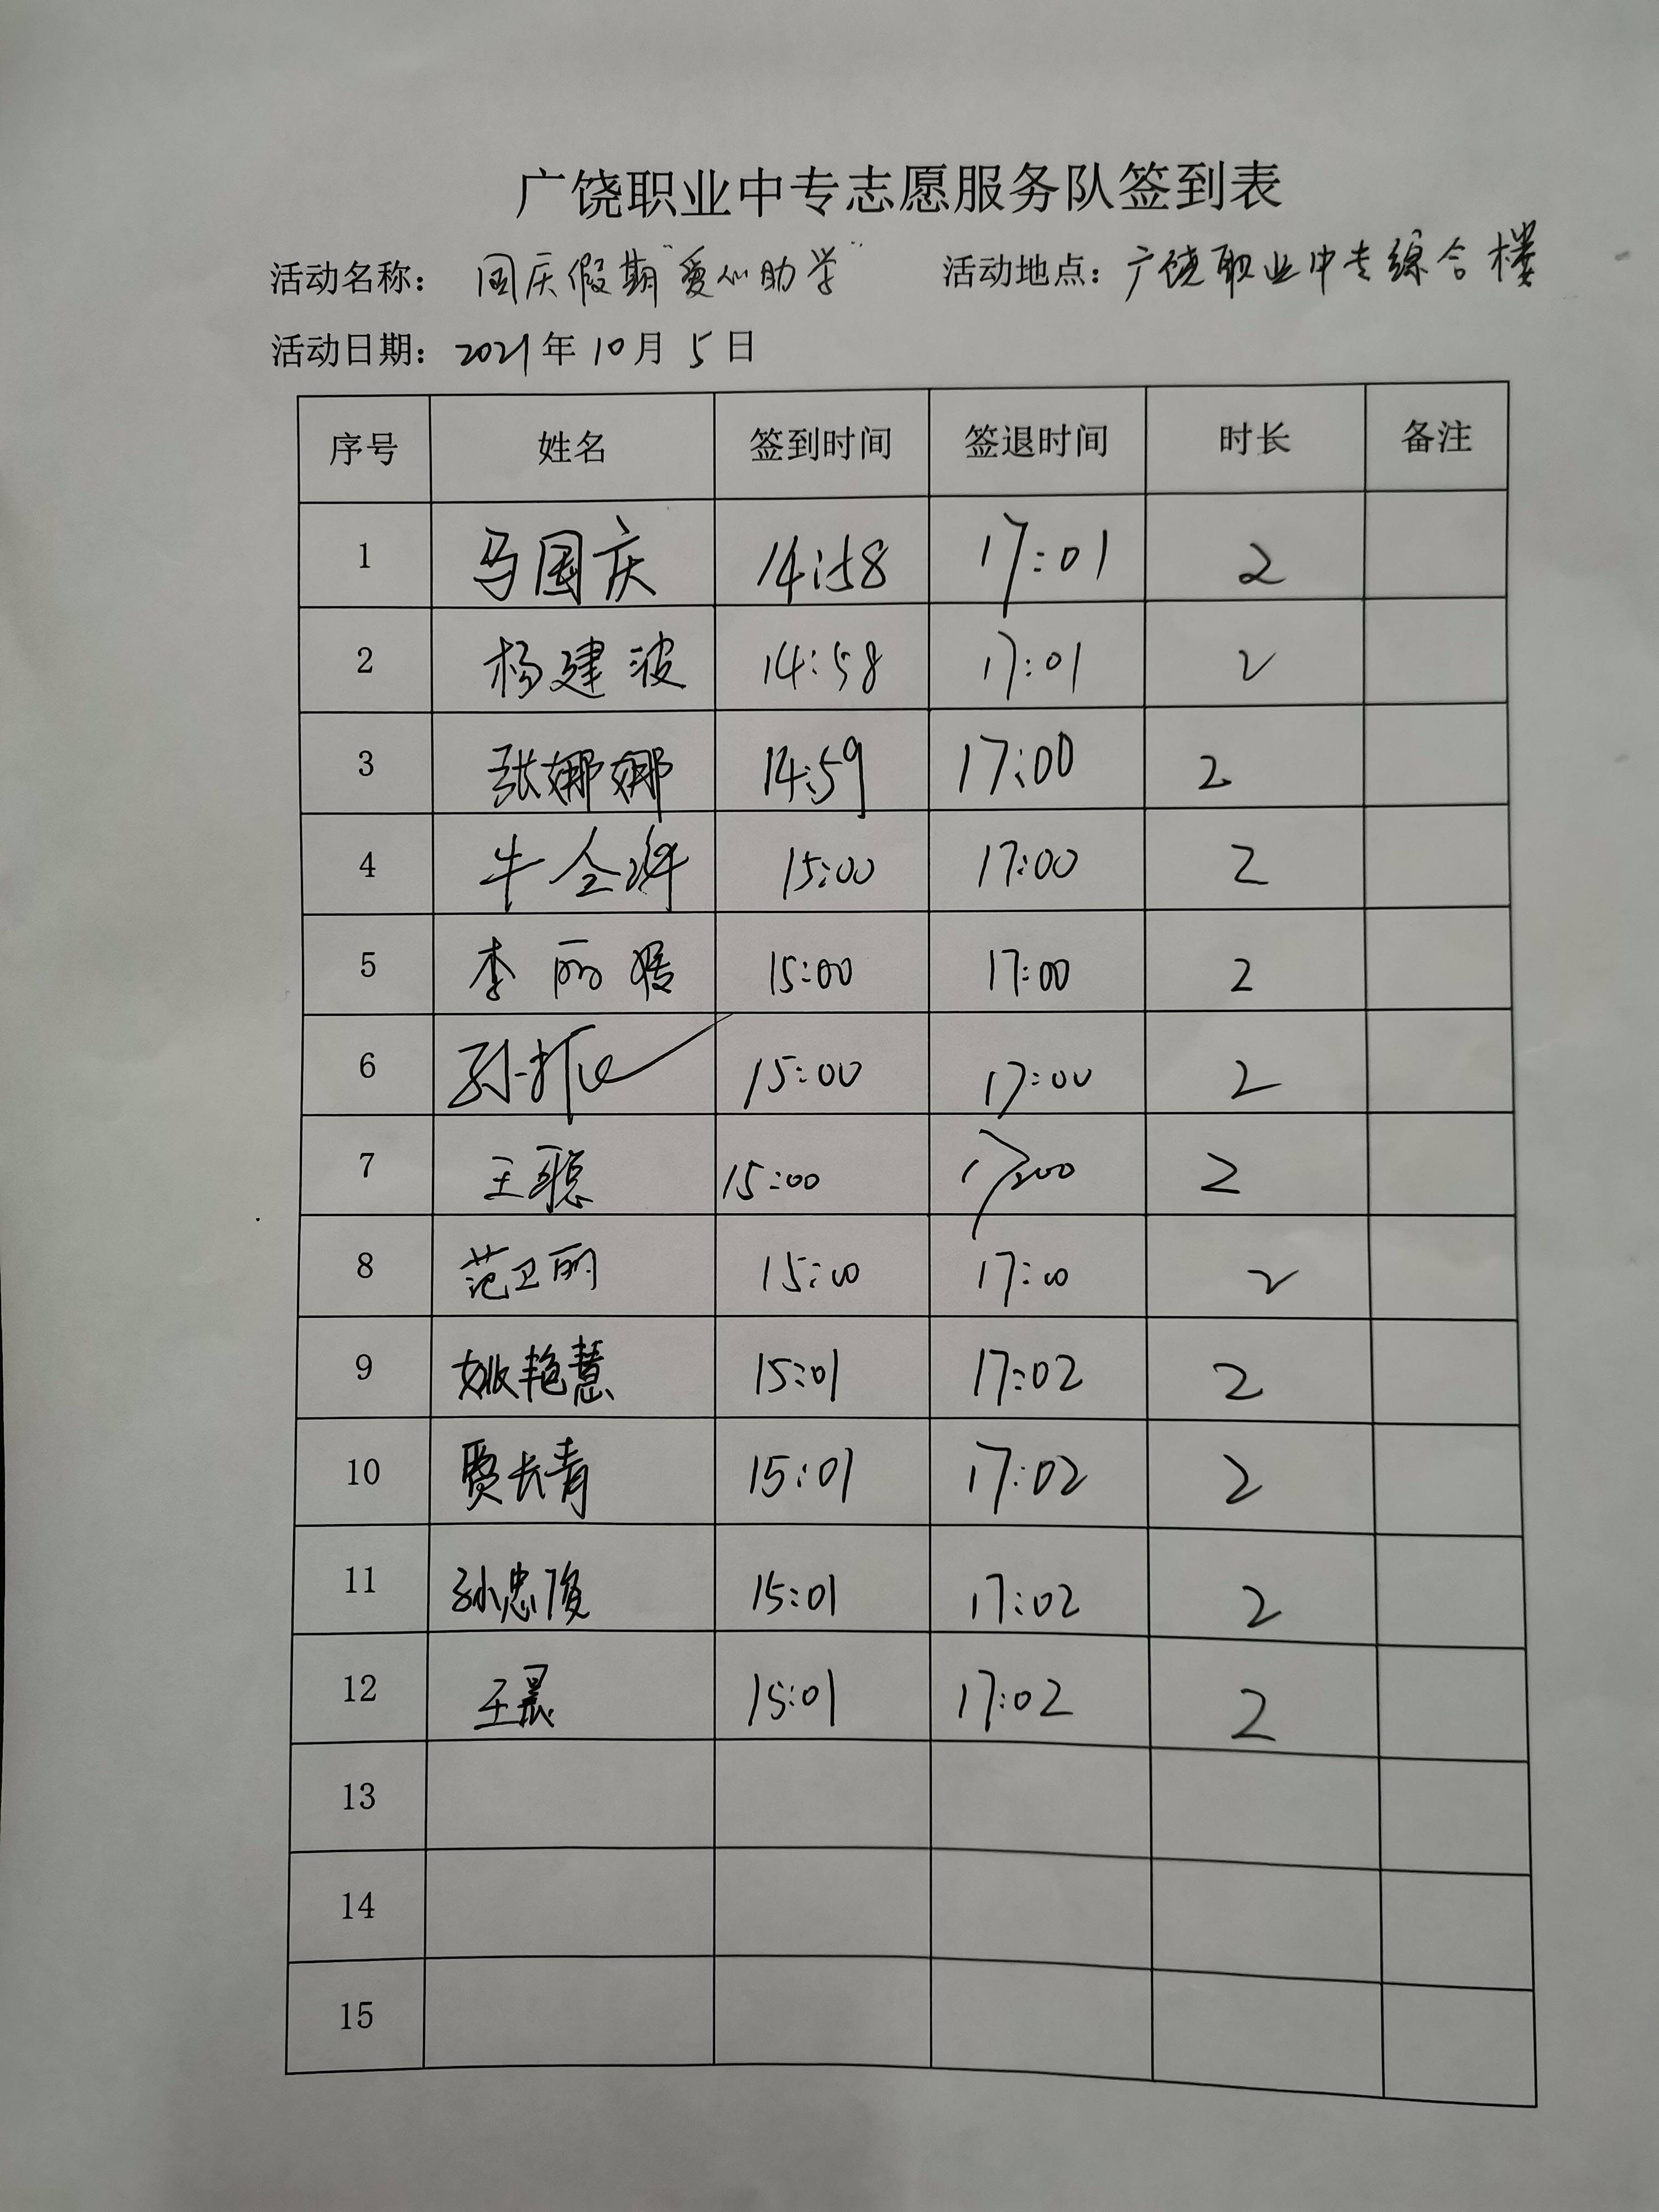 广饶职业中专志愿服务队签到表
活动名称： 国庆假期“爱心助学” 活动地点：广饶职业中专综合楼
活动日期：2021年10月5日
序号 姓名 签到时间 签退时间 时长 备注
1 马国庆 14:58 17:01 2
2 杨建波 14:58 17:01 2
3 张娜娜 14:59 17:00 2
4 牛全 15:00 17:00 2
5 李丽 15:00 17:00 2
6 孙 15:00 17:00 2
7 王聪 15:00 17:00 2
8 范卫丽 15:00 17:00 2
9 姚艳慧 15:01 17:02 2
10 贾长青 15:01 17:02 2
11 孙忠俊 15:01 17:02 2
12 王晨 15:01 17:02 2
13
14
15